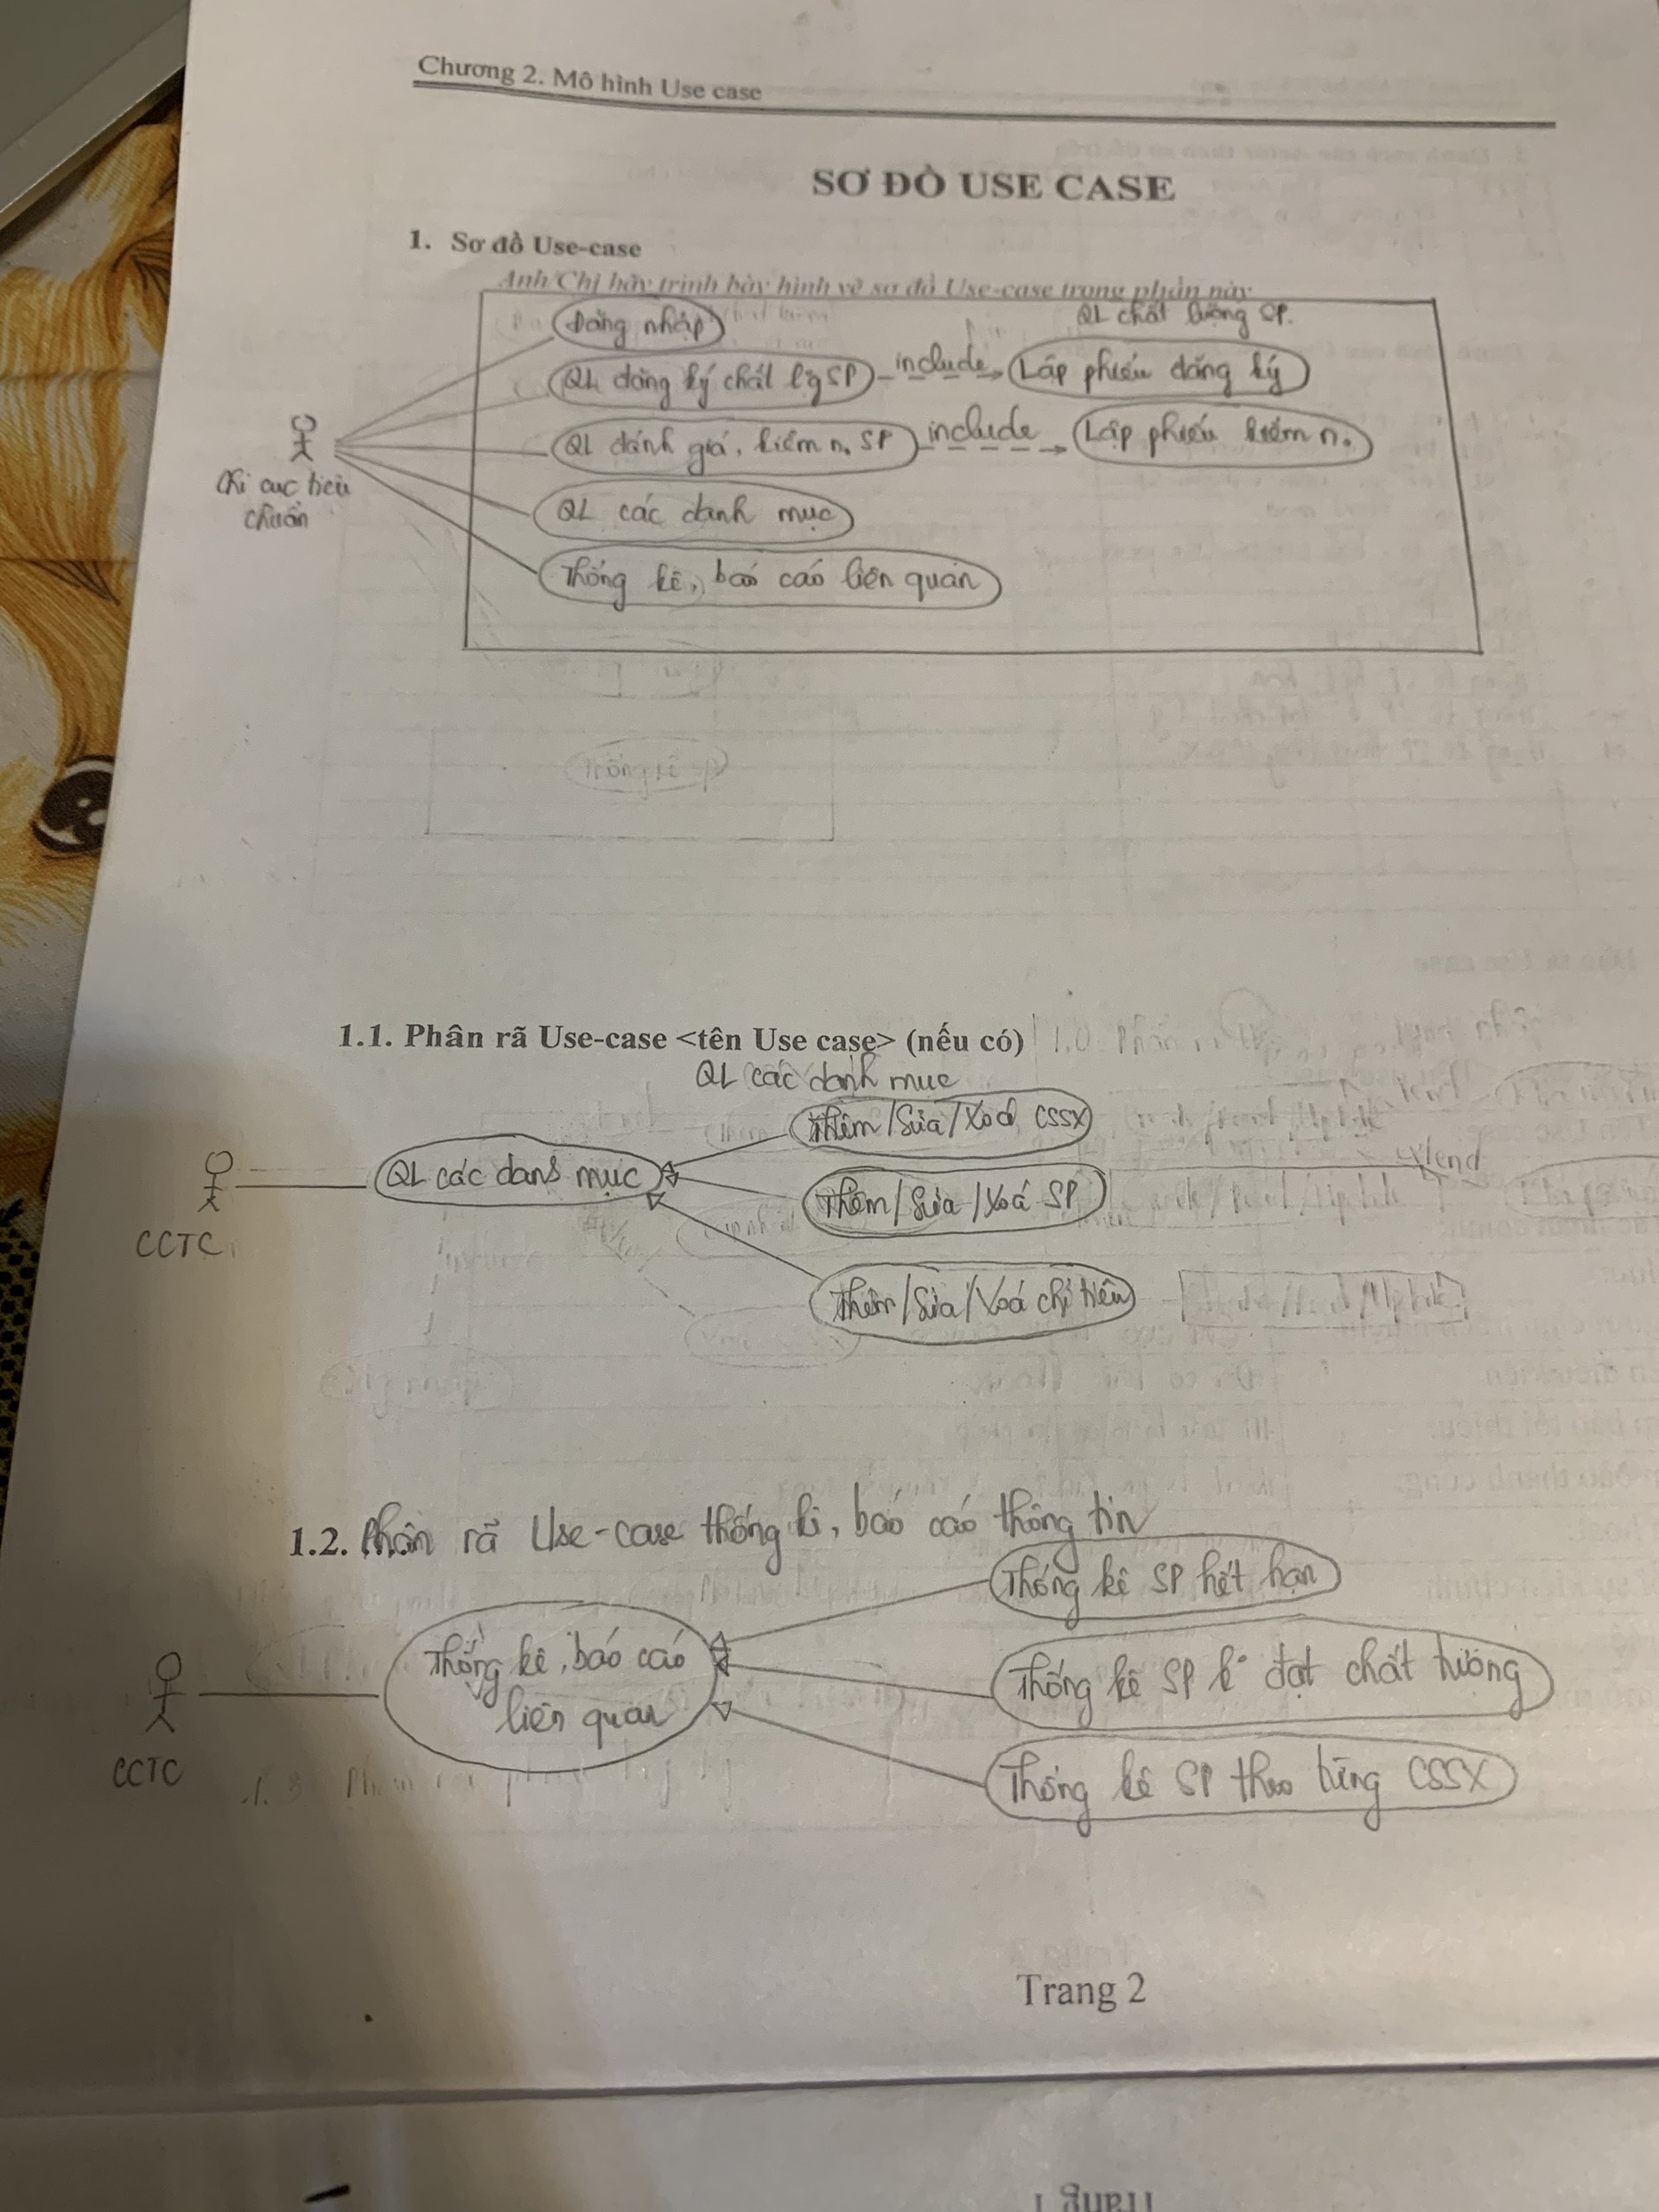 Chương 2. Mô hình Use case
SƠ ĐỒ USE CASE
1. Sơ đồ Use-case
Anh/Chị hãy trình bày hình vẽ sơ đồ Use-case trong phần này
QL chất lượng SP.
Đăng nhập
QL đăng ký chất lg SP include Lập phiếu đăng ký
QL đánh giá, kiểm n. SP include Lập phiếu kiểm n.
Chi cục tiêu
chuẩn
QL các danh mục
Thống kê, báo cáo liên quan
1.1. Phân rã Use-case <tên Use case> (nếu có)
QL các danh mục
Thêm/Sửa/Xoá CSSX
QL các danh mục
Thêm/Sửa/Xoá SP
CCTC
Thêm/Sửa/Xoá chỉ tiêu
1.2. Phân rã Use-case thống kê, báo cáo thông tin
Thống kê SP hết hạn
Thống kê, báo cáo
liên quan
Thống kê SP k° đạt chất lượng
CCTC
Thống kê SP theo từng CSSX
Trang 2